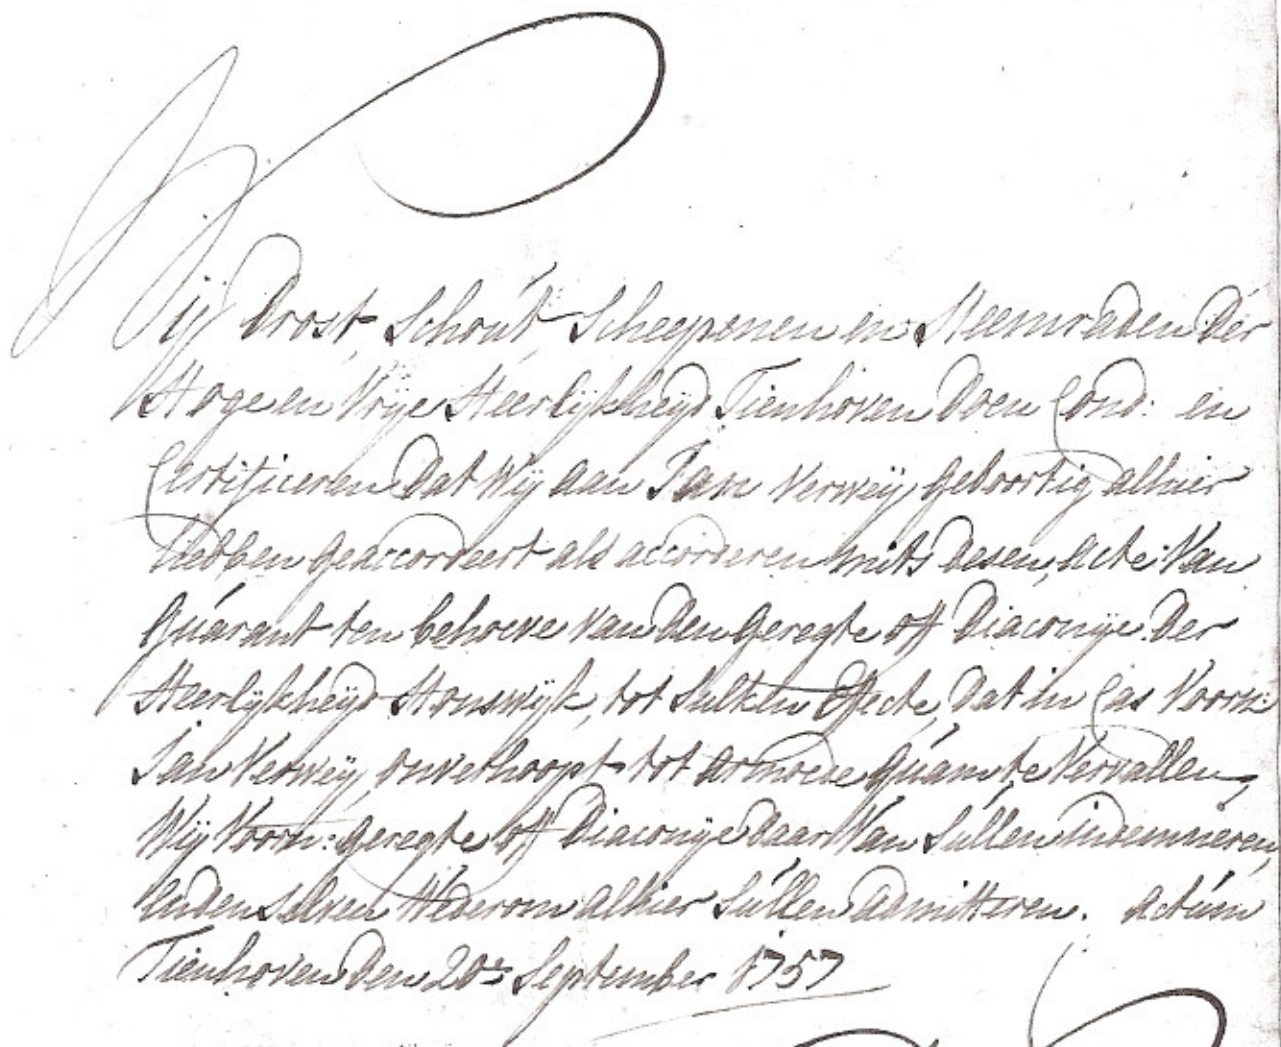 Wij Drost, Schout Scheepenen en Heemraden der
Hoge en Vrije Heerlijkheijd Tienhoven doen Cond: en
Certificeren dat Wij aan Jan Verweij, geboortig alhier
hebben geaccordeert als accorderen mits desen, Acte Van
Guarant ten behoeve van den geregte off Diaconije der
Heerlijkheijd Honswijk, tot sulken Effecte, dat in Cas Voorn:
Jan Verweij, onverhoopt tot armoede quam te Vervallen,
Wij Voorn: geregte off Diaconije daar Van sullen indemneren,
en den selven Wederom alhier sullen admitteren. Actum
Tienhoven den 20e September 1757